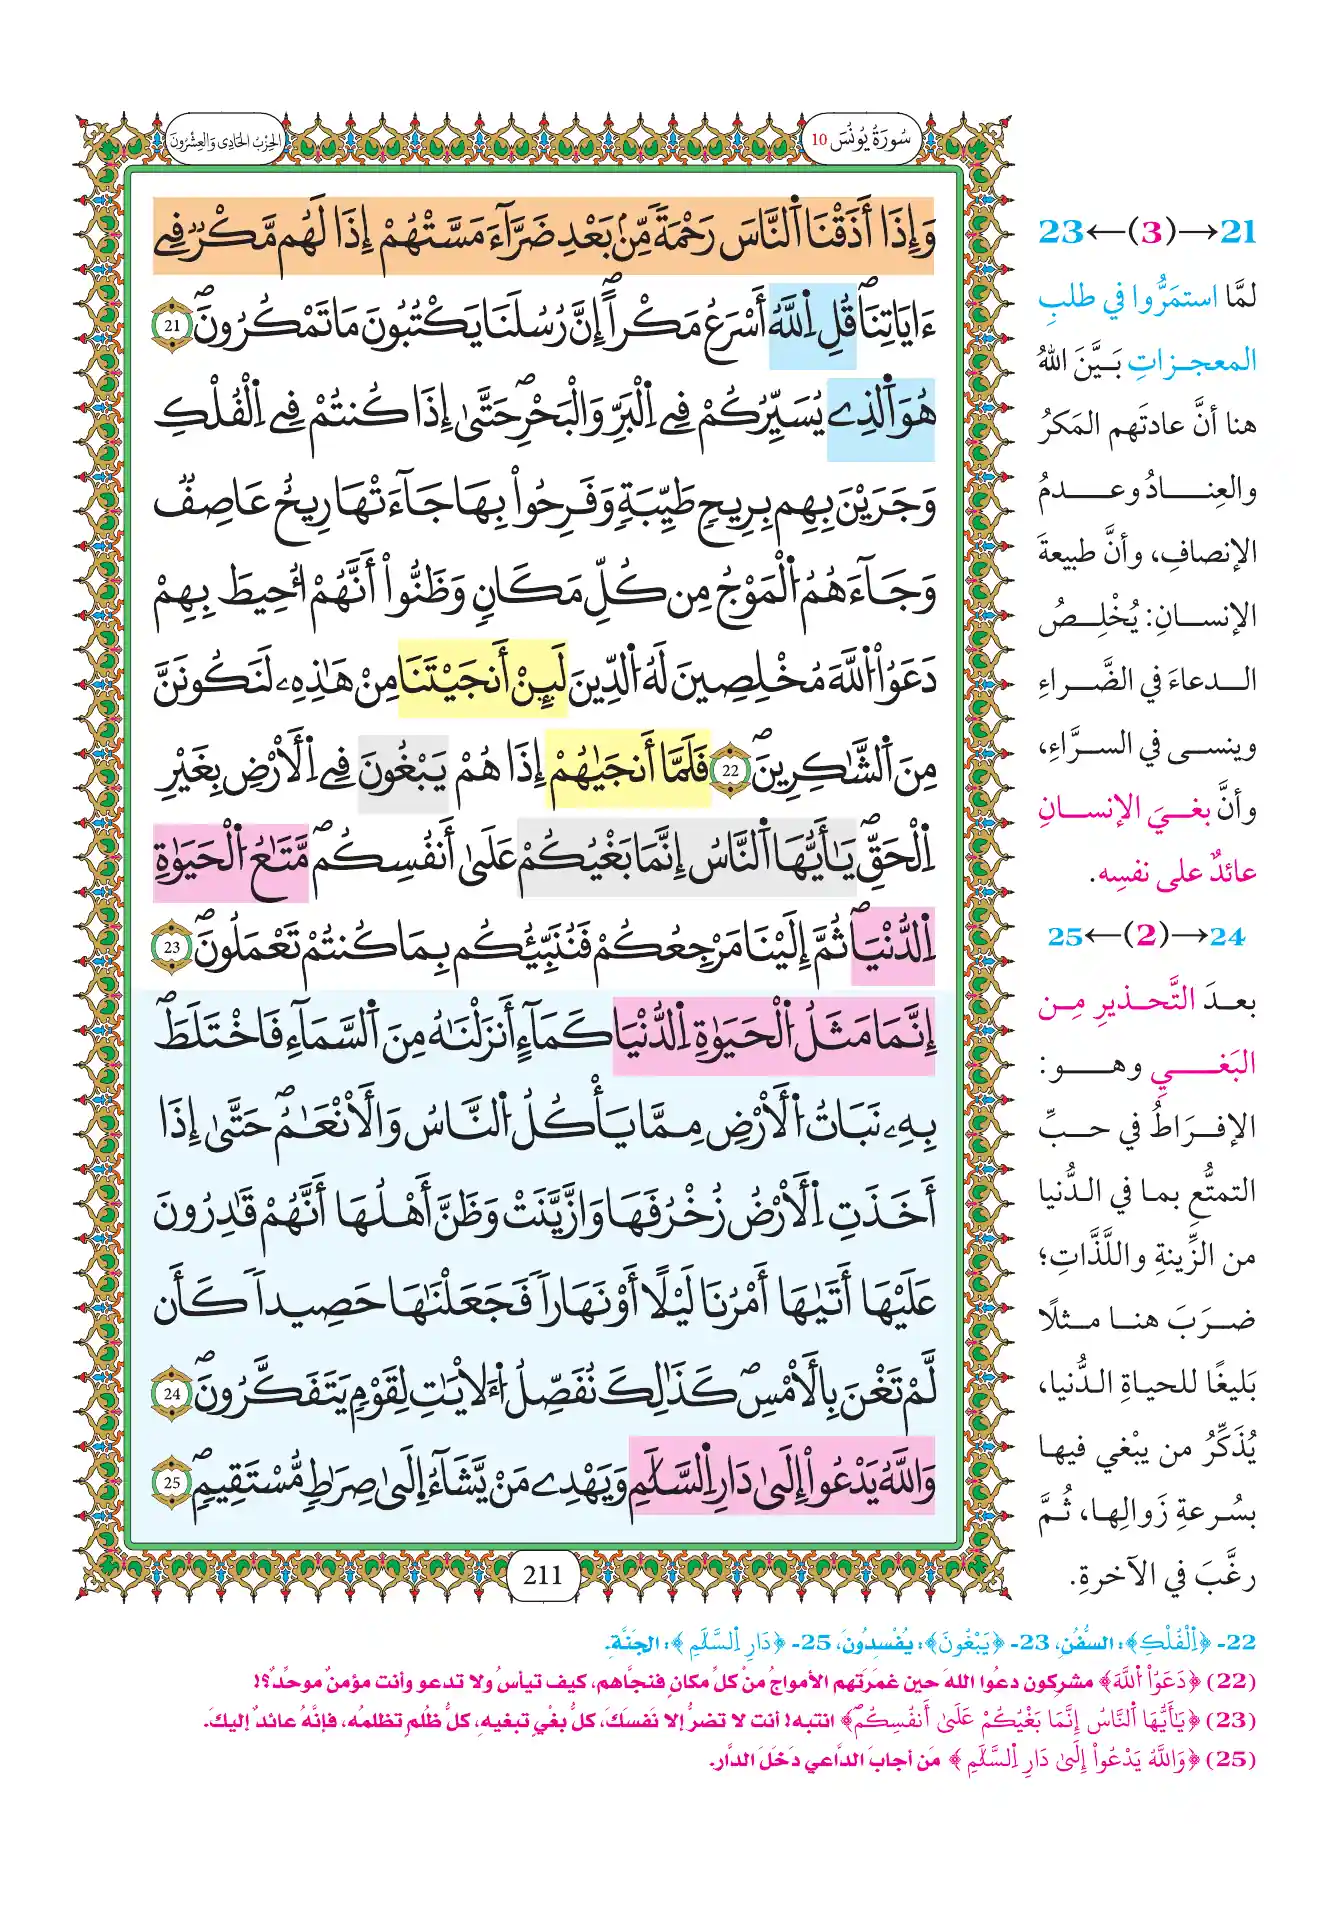 سُورَةُ يُونُسَ 10
الحِزْبُ الحَادِي وَالعِشْرُونَ
وَإِذَا أَذَقْنَا اَ۬لنَّاسَ رَحْمَةٗ مِّنۢ بَعْدِ ضَرَّآءَ مَسَّتْهُمُۥٓ إِذَا لَهُم مَّكْرٞ فِےٓ
ءَايَاتِنَاۖ قُلِ اِ۬للَّهُ أَسْرَعُ مَكْراًۖ إِنَّ رُسُلَنَا يَكْتُبُونَ مَا تَمْكُرُونَۖ 21
هُوَ اَ۬لذِے يُسَيِّرُكُمْ فِے اِ۬لْبَرِّ وَالْبَحْرِۖ حَتَّىٰٓ إِذَا كُنتُمْ فِے اِ۬لْفُلْكِ
وَجَرَيْنَ بِهِم بِرِيحٖ طَيِّبَةٖ وَفَرِحُواْ بِهَا جَآءَتْهَا رِيحٌ عَاصِفٞ
وَجَآءَهُمُ اُ۬لْمَوْجُ مِن كُلِّ مَكَانٖ وَظَنُّوٓاْ أَنَّهُمُۥٓ أُحِيطَ بِهِمْ
دَعَوُاْ اُ۬للَّهَ مُخْلِصِينَ لَهُ اُ۬لدِّينَ لَئِنْ أَنجَيْتَنَا مِنْ هَٰذِهِۦ لَنَكُونَنَّ
مِنَ اَ۬لشَّٰكِرِينَۖ 22 فَلَمَّآ أَنجَيٰهُمُۥٓ إِذَا هُمْ يَبْغُونَ فِے اِ۬لَارْضِ بِغَيْرِ
اِ۬لْحَقِّۖ يَٰٓأَيُّهَا اَ۬لنَّاسُ إِنَّمَا بَغْيُكُمْ عَلَىٰٓ أَنفُسِكُمۖ مَّتَٰعُ اُ۬لْحَيَوٰةِ
اِ۬لدُّنْيَاۖ ثُمَّ إِلَيْنَا مَرْجِعُكُمْ فَنُنَبِّئُكُم بِمَا كُنتُمْ تَعْمَلُونَۖ 23
إِنَّمَا مَثَلُ اُ۬لْحَيَوٰةِ اِ۬لدُّنْيَا كَمَآءٍ أَنزَلْنَٰهُ مِنَ اَ۬لسَّمَآءِ فَاخْتَلَطَۖ
بِهِۦ نَبَاتُ اُ۬لَارْضِ مِمَّا يَأْكُلُ اُ۬لنَّاسُ وَالَانْعَٰمُۖ حَتَّىٰٓ إِذَآ
أَخَذَتِ اِ۬لَارْضُ زُخْرُفَهَا وَازَّيَّنَتْ وَظَنَّ أَهْلُهَآ أَنَّهُمْ قَٰدِرُونَ
عَلَيْهَآ أَتَيٰهَآ أَمْرُنَا لَيْلًا أَوْ نَهَاراٗ فَجَعَلْنَٰهَا حَصِيداٗ كَأَن
لَّمْ تَغْنَ بِالَامْسِۖ كَذَٰلِكَ نُفَصِّلُ اُ۬لَايَٰتِ لِقَوْمٖ يَتَفَكَّرُونَۖ 24
وَاللَّهُ يَدْعُوٓاْ إِلَىٰ دَارِ اِ۬لسَّلَٰمِ وَيَهْدِے مَنْ يَّشَآءُ اِلَىٰ صِرَٰطٖ مُّسْتَقِيمٖۖ 25
211
21→(3)←23
لمَّا استمَرُّوا في طلبِ
المعجزاتِ بَيَّنَ اللهُ
هنا أنَّ عادتَهم المَكرُ
والعِنادُ وعدمُ
الإنصافِ، وأنَّ طبيعةَ
الإنسانِ: يُخْلِصُ
الدعاءَ في الضَّراءِ
وينسى في السرَّاءِ،
وأنَّ بغيَ الإنسانِ
عائدٌ على نفسِه.
24→(2)←25
بعدَ التَّحذيرِ مِن
البَغيِ وهو:
الإفراطُ في حبِّ
التمتُّعِ بما في الدُّنيا
من الزِّينةِ واللَّذَّاتِ؛
ضرَبَ هنا مثلًا
بَليغًا للحياةِ الدُّنيا،
يُذَكِّرُ من يبْغي فيها
بسُرعةِ زَوالِها، ثُمَّ
رغَّبَ في الآخرةِ.
22- ﴿اِ۬لْفُلْكِ﴾: السُّفُنِ، 23- ﴿يَبْغُونَ﴾: يُفْسِدُونَ، 25- ﴿دَارِ اِ۬لسَّلَٰمِ﴾: الجَنَّةِ.
(22) ﴿دَعَوُاْ اُ۬للَّهَ﴾ مشركون دعُوا اللهَ حين غمَرَتهم الأمواجُ منْ كلِّ مكانٍ فنجَّاهم، كيف تيأسُ ولا تدعو وأنت مؤمنٌ موحِّدٌ؟!
(23) ﴿يَٰٓأَيُّهَا اَ۬لنَّاسُ إِنَّمَا بَغْيُكُمْ عَلَىٰٓ أَنفُسِكُمۖ﴾ انتبه! أنت لا تضرُّ إلا نَفسَكَ، كلُّ بغْيٍ تبغيهِ، كلُّ ظُلمٍ تظلمُه، فإنَّهُ عائدٌ إليكَ.
(25) ﴿وَاللَّهُ يَدْعُوٓاْ إِلَىٰ دَارِ اِ۬لسَّلَٰمِ﴾ مَن أجابَ الدَّاعي دَخَلَ الدَّار.